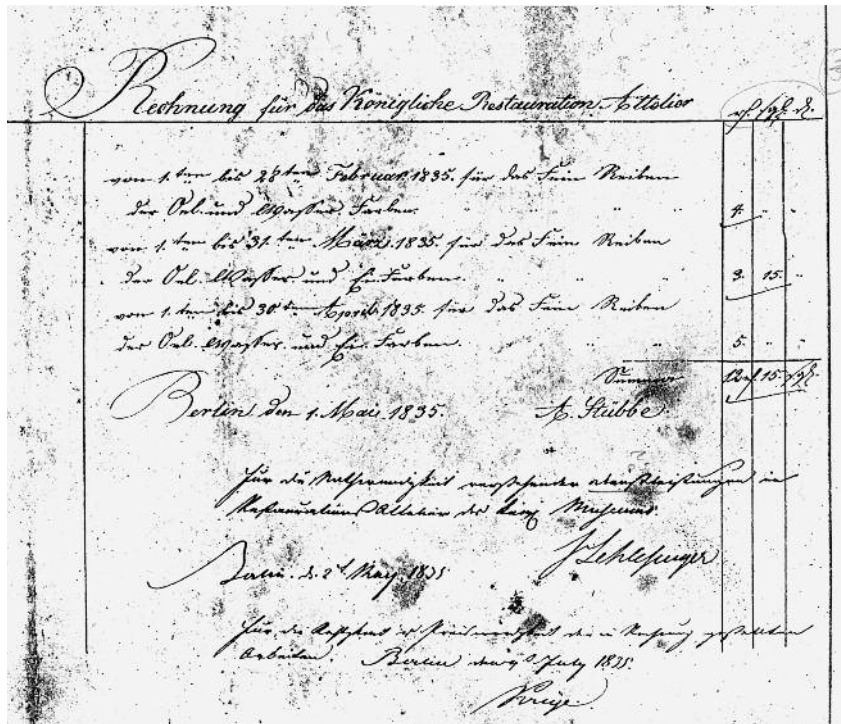 Rechnung für das Königliche Restauration Attelier
rf. sgl. d.
vom 1.ten bis 28ten Februar 1835. für das Fein Reiben
der Oel und Wasser Farben. " " " 4. " "
vom 1.ten bis 31.ten März 1835. für das Fein Reiben
der Oel. Wasser und Ei Farben. " " " 3. 15. "
vom 1.ten bis 30.ten April 1835. für das Fein Reiben
der Oel. Wasser. und Ei. Farben. " " 5. " "
Summa 12 rf. 15. sgl.
Berlin den 1. Mai. 1835. A. Stübbe
Für die Nothwendigkeit vorstehender Dienstleistungen im
Restaurations Attelier des Museums
Schlesinger
Berlin. d. 2t May. 1835
Für die Richtigkeit u Preiswürdigkeit der in Rechnung gestellten
Arbeiten. Berlin July 1835.